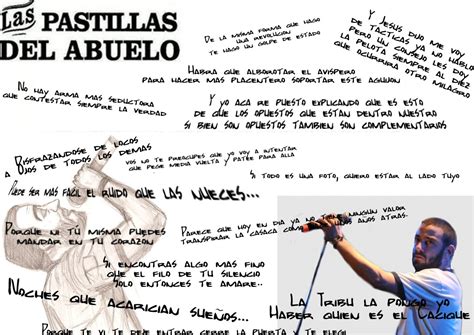 Las
PASTILLAS
DEL ABUELO
De la misma forma que hago
una revolución
te hago un golpe de estado
Y Jesus dijo me voy
de tacticas ya no hablo
pero un consejo les doy
la pelota siempre al diez
que ocurrira otro milagro
Habra que alborotar el avispero
para hacer mas placentero soportar este aguijon
No hay arma mas seductora
que contestar siempre la verdad
Y yo aca re puesto explicando que es esto
de que los opuestos que estan dentro nuestro
si bien son opuestos tambien son complementarios
Disfrazandose de locos
a ojos de todos los demas
vos no te preocupes que yo voy a intentar
que pegue media vuelta y patee para alla
Si todo es una foto, quiero estar al lado tuyo
Puede ser mas facil el ruido que las nueces...
Porque ni tu misma puedes
mandar en tu corazon
Parece que hoy en dia ya no ningun valor
transpirar la casaca como años atras.
Si encontras algo mas fino
que el filo de tu silencio
solo entonces te amare..
Noches que acarician sueños...
La Tribu la pongo yo
Haber quien es el Cacique
Porque te vi te deje entrar cerre la puerta y te elegi